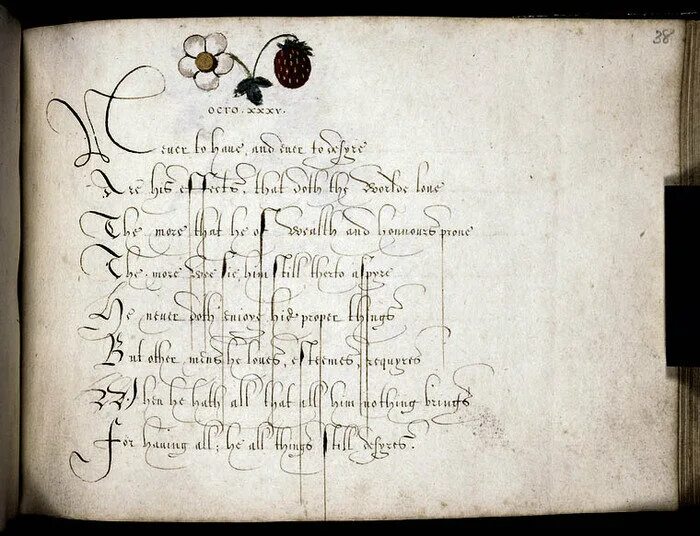 38
OCTO. XXXV.
Never to haue, and euer to desyre
Are his effects, that doth the Worlde loue
The more that he of wealth and honnours proue
The more wee sie him still therto aspyre
He neuer doth enioye his proper things
But other mens he loues, esteemes, requyres
When he hath all that all him nothing brings
For hauing all; he all things still desyres.